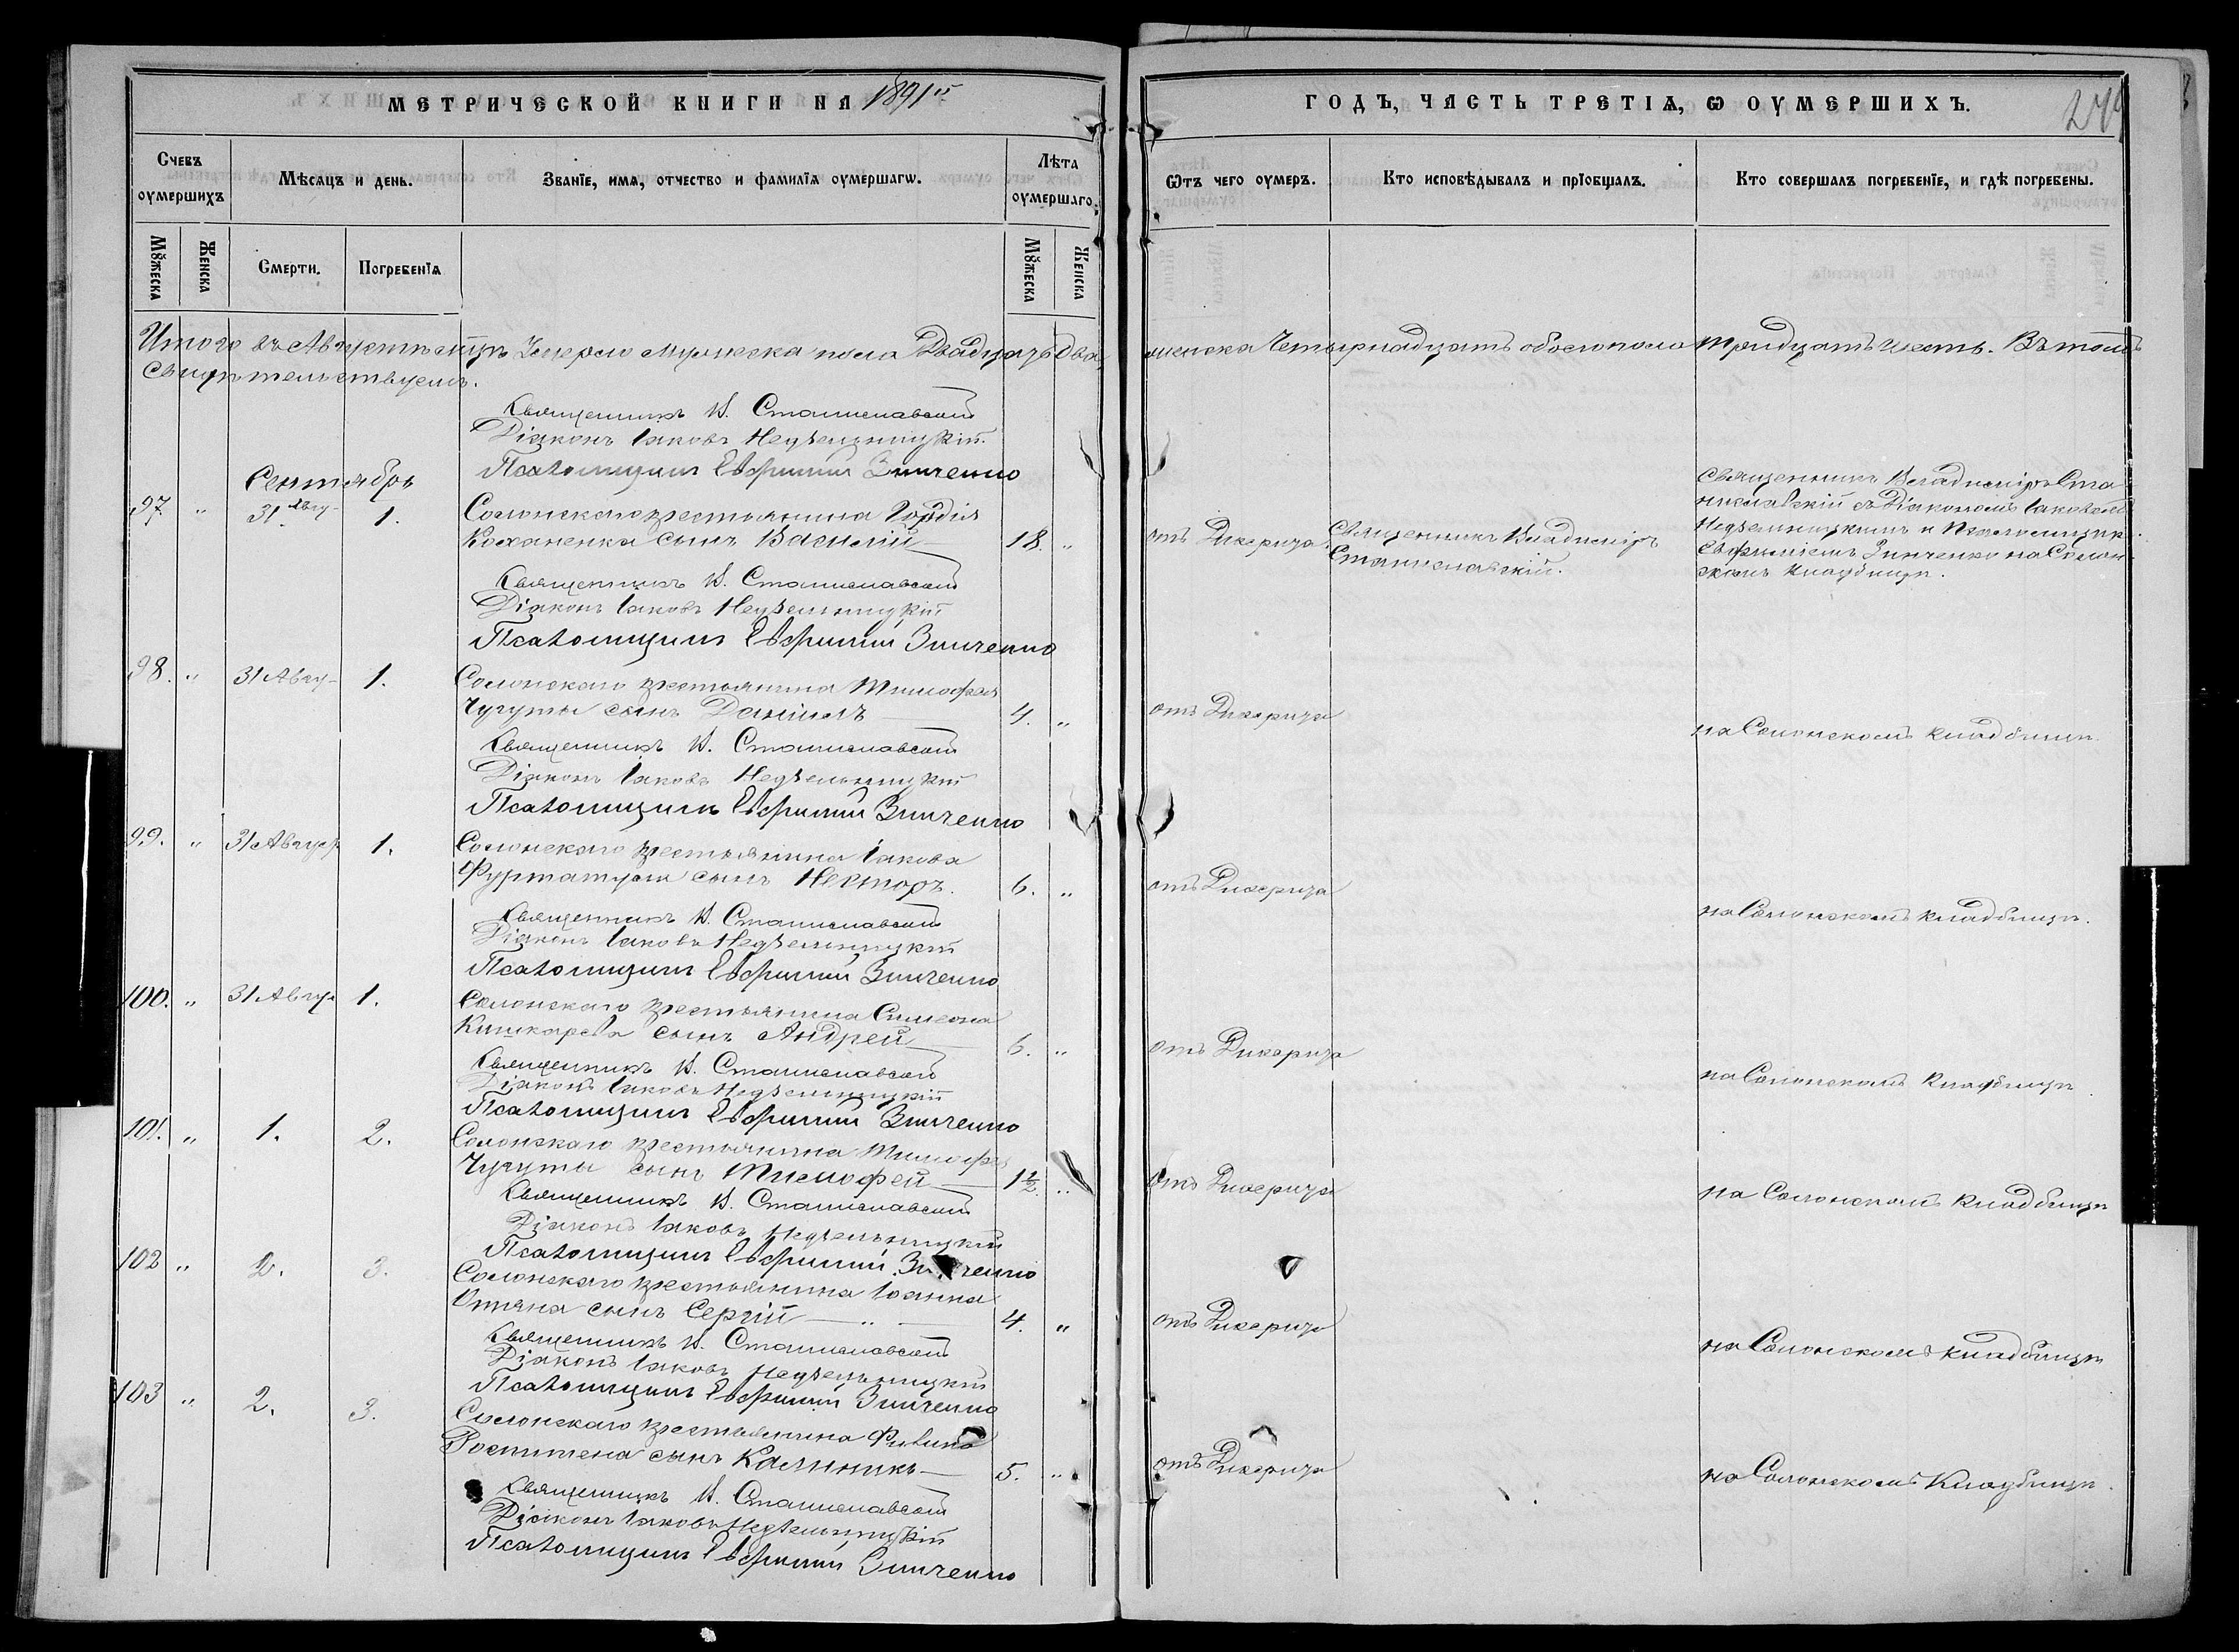 МЕТРИЧЕСКОЙ КНИГИ НА 1891й
ГОДЪ, ЧАСТЬ ТРЕТІѦ, Ѡ ОУМЕРШИХЪ.
Счевъ оумершихъ
Мѣсяцъ и день.
Званїе, имя, отчество и фамилїя оумершагѡ.
Лѣта оумершаго.
Ѿтъ чего оумеръ.
Кто исповѣдывалъ и прїобщалъ.
Кто совершалъ погребенїе, и гдѣ погребены.
Мꙋжеска
Женска
Смерти.
Погребенїя
Мꙋжеска
Женска
Итого въ Августѣ мцѣ умерло мужеска пола Двадцать два, женска Четырнадцать обоего пола тридцать шесть. Въ томъ
свидѣтельствуемъ.
Священникъ В. Станиславскій
Діаконъ Іаковъ Недѣльницкій.
Псаломщикъ Евфимій Зинченко
Сентябрь
97. " 31 Авгу- 1. Солонскаго крестьянина Гордія
Коханенка сынъ Василій 18. " отъ Дисериза
Священникъ Владиміръ
Станиславскій.
Священникъ Владиміръ Ста
ниславскій съ Діакономъ Іаковомъ
Недѣльницкимъ и Псаломщик.
Евфиміемъ Зинченко на Солон-
скомъ кладбищѣ.
Священникъ В. Станиславскій
Діаконъ Іаковъ Недѣльницкій
Псаломщикъ Евфимій Зинченко
98. " 31 Авгу- 1. Солонскаго крестьянина Тимофея
Чугуты сынъ Даніилъ 4. " отъ Дисериза
на Солонскомъ кладбищѣ.
Священникъ В. Станиславскій
Діаконъ Іаковъ Недѣльницкій
Псаломщикъ Евфимій Зинченко
99. " 31 Август 1. Солонскаго крестьянина Іакова
сынъ Несторъ. 6. " отъ Дисериза
на Солонскомъ кладбищѣ.
Священникъ В. Станиславскій
Діаконъ Іаковъ Недѣльницкій
Псаломщикъ Евфимій Зинченко
100. " 31 Авгу 1. Солонскаго крестьянина Симеона
Кишкарева сынъ Андрей 6. " отъ Дисериза
на Солонскомъ кладбищѣ.
Священникъ В. Станиславскій
Діаконъ Іаковъ Недѣльницкій
Псаломщикъ Евфимій Зинченко
101. " 1. 2. Солонскаго крестьянина Тимофея
Чугуты сынъ Тимофей 1½. " отъ Дисериза
на Солонскомъ кладбищѣ
Священникъ В. Станиславскій
Діаконъ Іаковъ Недѣльницкій
Псаломщикъ Евфимій Зинченко
102 " 2. 3. Солонскаго крестьянина Іоанна
сынъ Сергій — " — 4. " отъ Дисериза
на Солонскомъ кладбищѣ
Священникъ В. Станиславскій
Діаконъ Іаковъ Недѣльницкій
Псаломщикъ Евфимій Зинченко
103 " 2. 3. Солонскаго крестьянина Филипа
сынъ Калиникъ 5. " отъ Дисериза
на Солонскомъ Кладбищѣ.
Священникъ В. Станиславскій
Діаконъ Іаковъ Недѣльницкій
Псаломщикъ Евфимій Зинченко